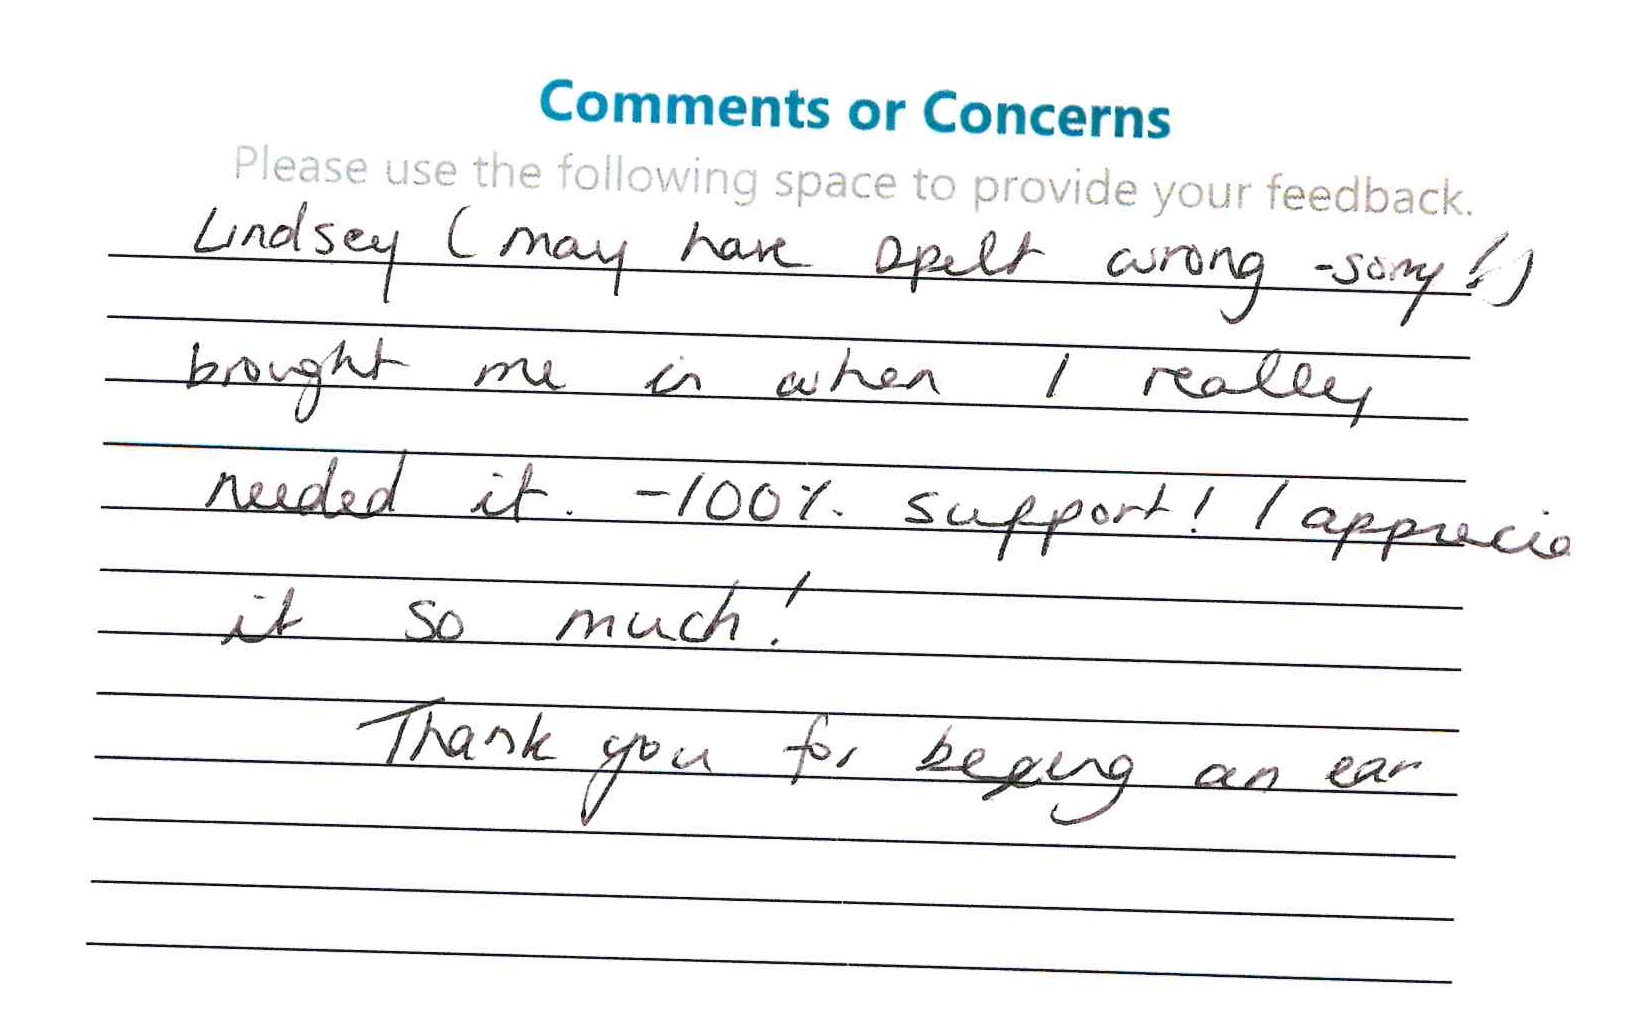 Comments or Concerns
Please use the following space to provide your feedback.
Lindsey (may have spelt wrong -sorry!)
brought me in when I really
needed it. -100% support! I apprecia
it so much!
Thank you for being an ear